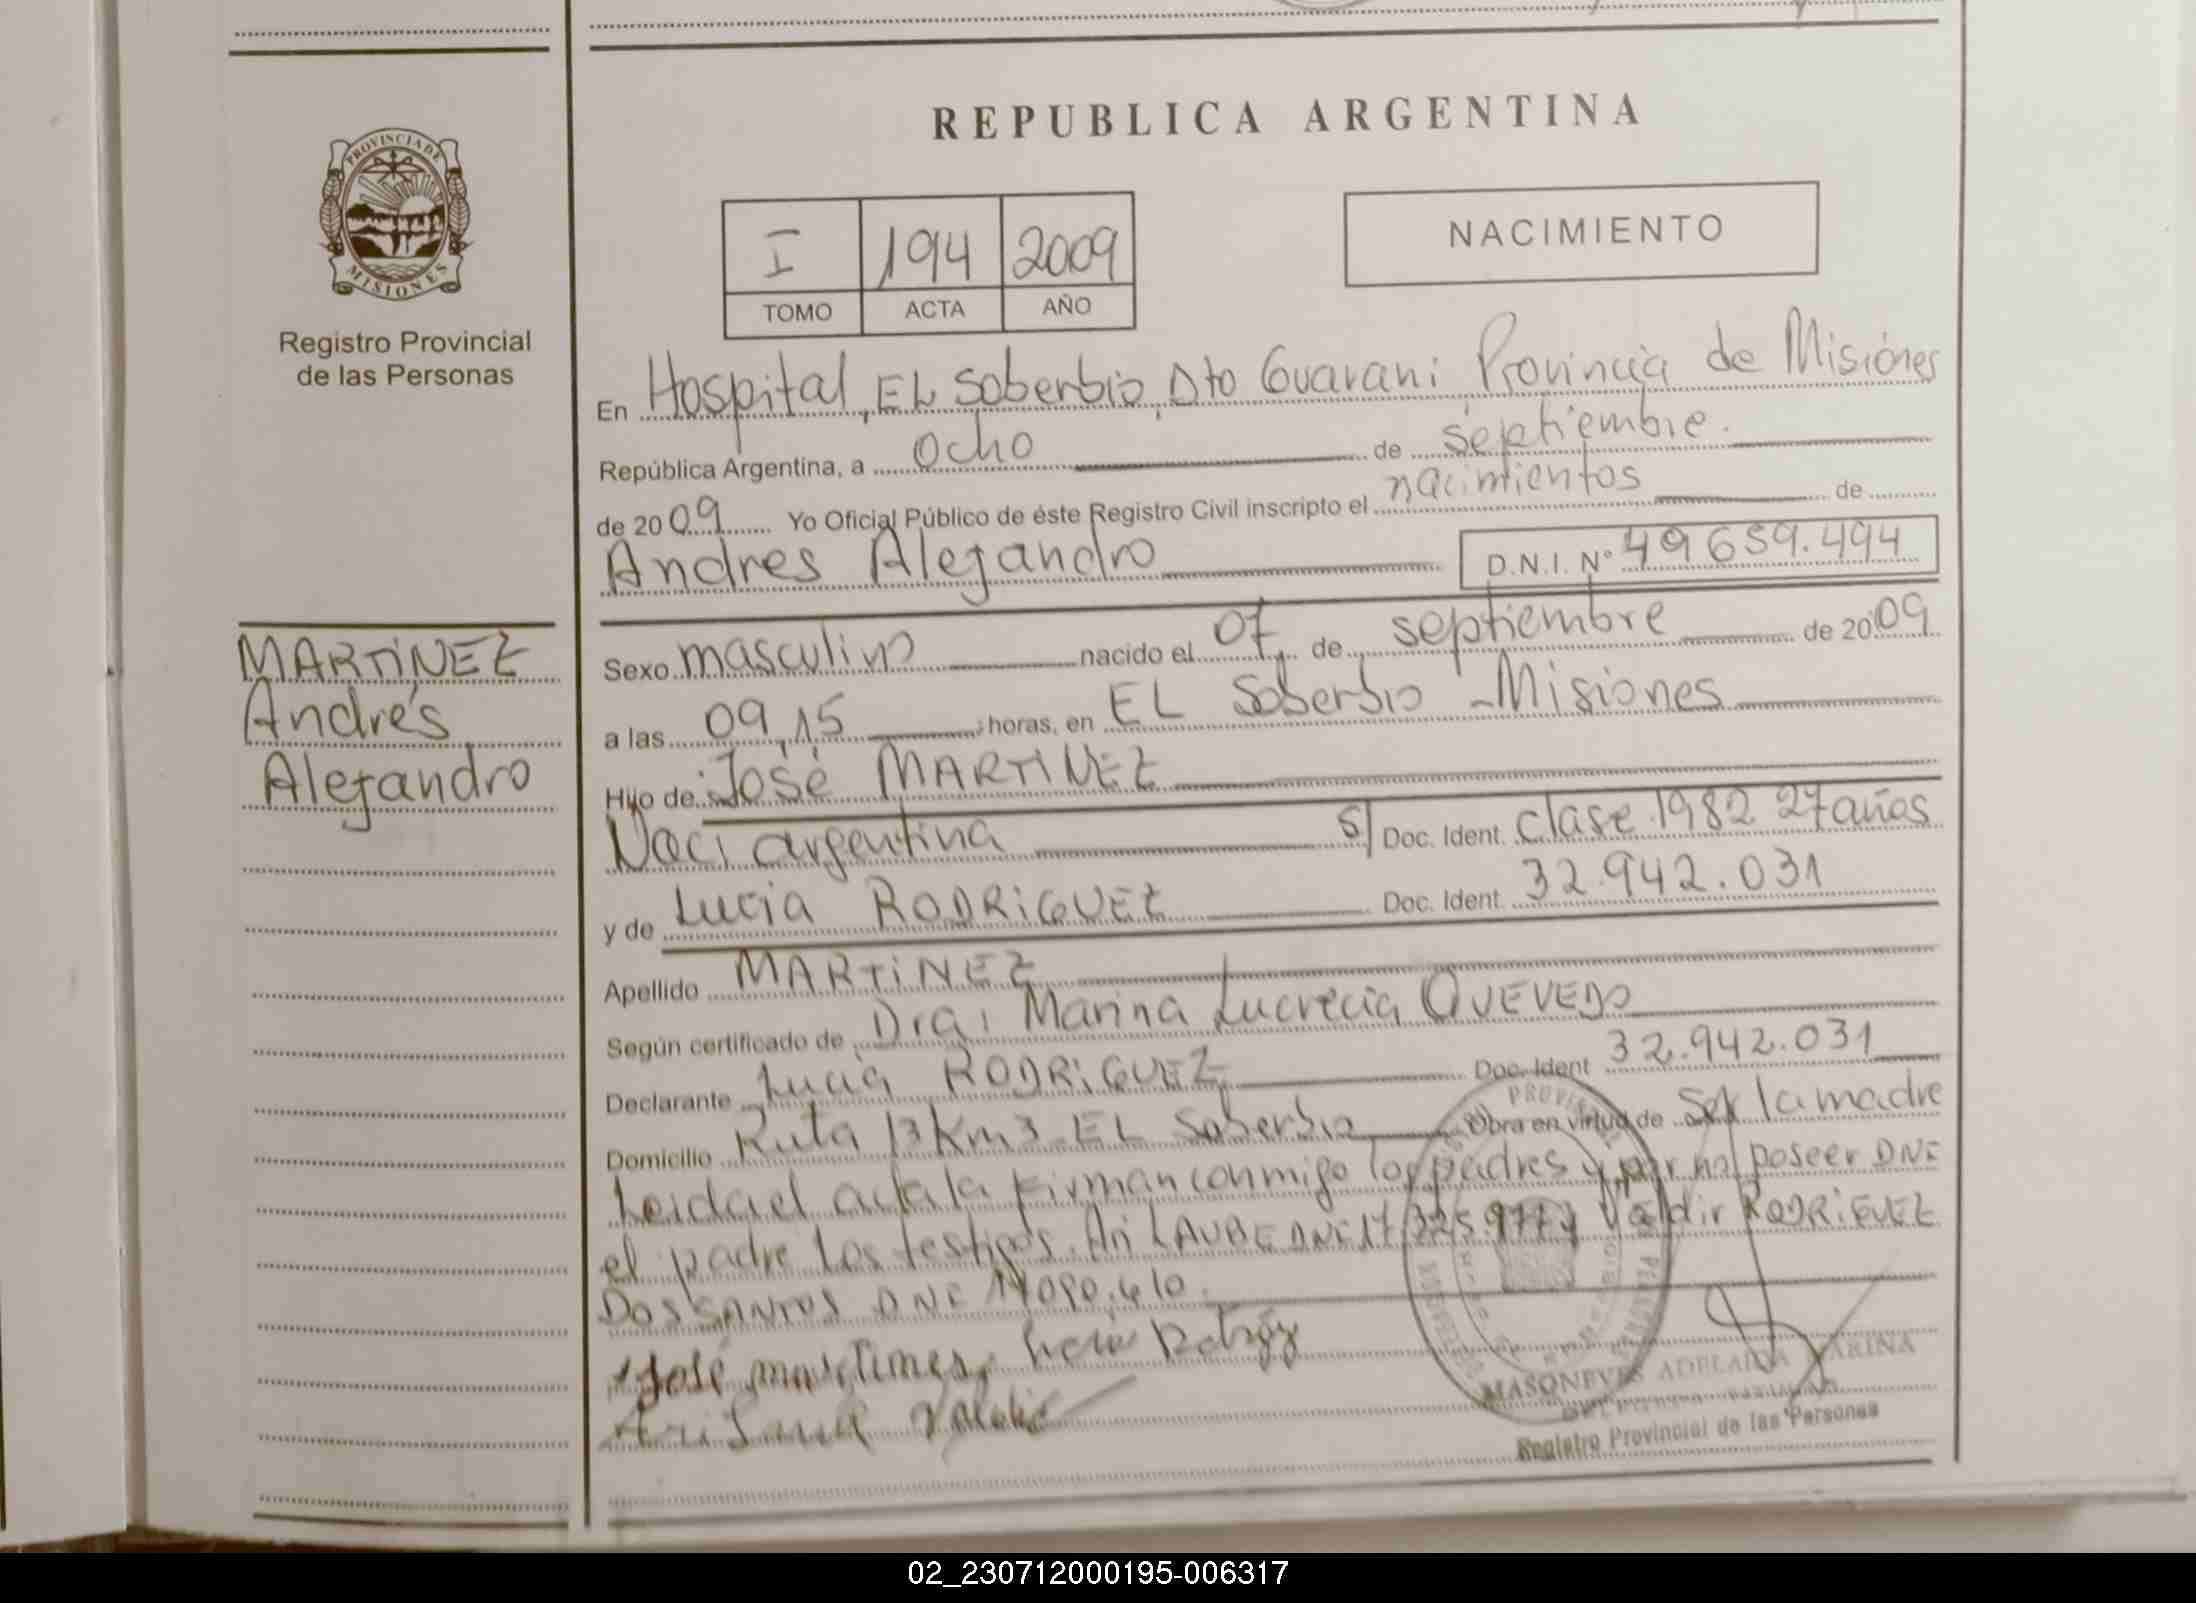 REPUBLICA ARGENTINA
PROVINCIA DE
MISIONES
Registro Provincial
de las Personas
I 194 2009
TOMO ACTA AÑO
NACIMIENTO
En Hospital, EL Soberbio, Dto Guarani Provincia de Misiones
República Argentina, a ocho de septiembre.
de 2009 Yo Oficial Público de éste Registro Civil inscripto el nacimientos de
Andres Alejandro D.N.I. Nº 49659.494
MARTINEZ
Andrés
Alejandro
Sexo masculino nacido el 07 de septiembre de 2009
a las 09,15 horas, en EL Soberbio - Misiones
Hijo de José MARTINEZ
Naci argentina S/ Doc. Ident. clase 1982 27 años
y de Lucia RODRIGUEZ Doc. Ident. 32.942.031
Apellido MARTINEZ
Según certificado de Dra. Marina Lucrecia QUEVEDO
Declarante Lucia RODRIGUEZ Doc. Ident 32.942.031
Domicilio Ruta 13 Km3 EL Soberbio Obra en virtud de Ser la madre
Leida el acta la firman conmigo los padres y por no poseer DNI
el padre los testigos. Ari LAUBE DNI 17.325.977 y Valdir RODRIGUEZ
DOS SANTOS DNI
José martines,
MASONEVES ADELAIDA MARINA
Registro Provincial de las Personas
02_230712000195-006317